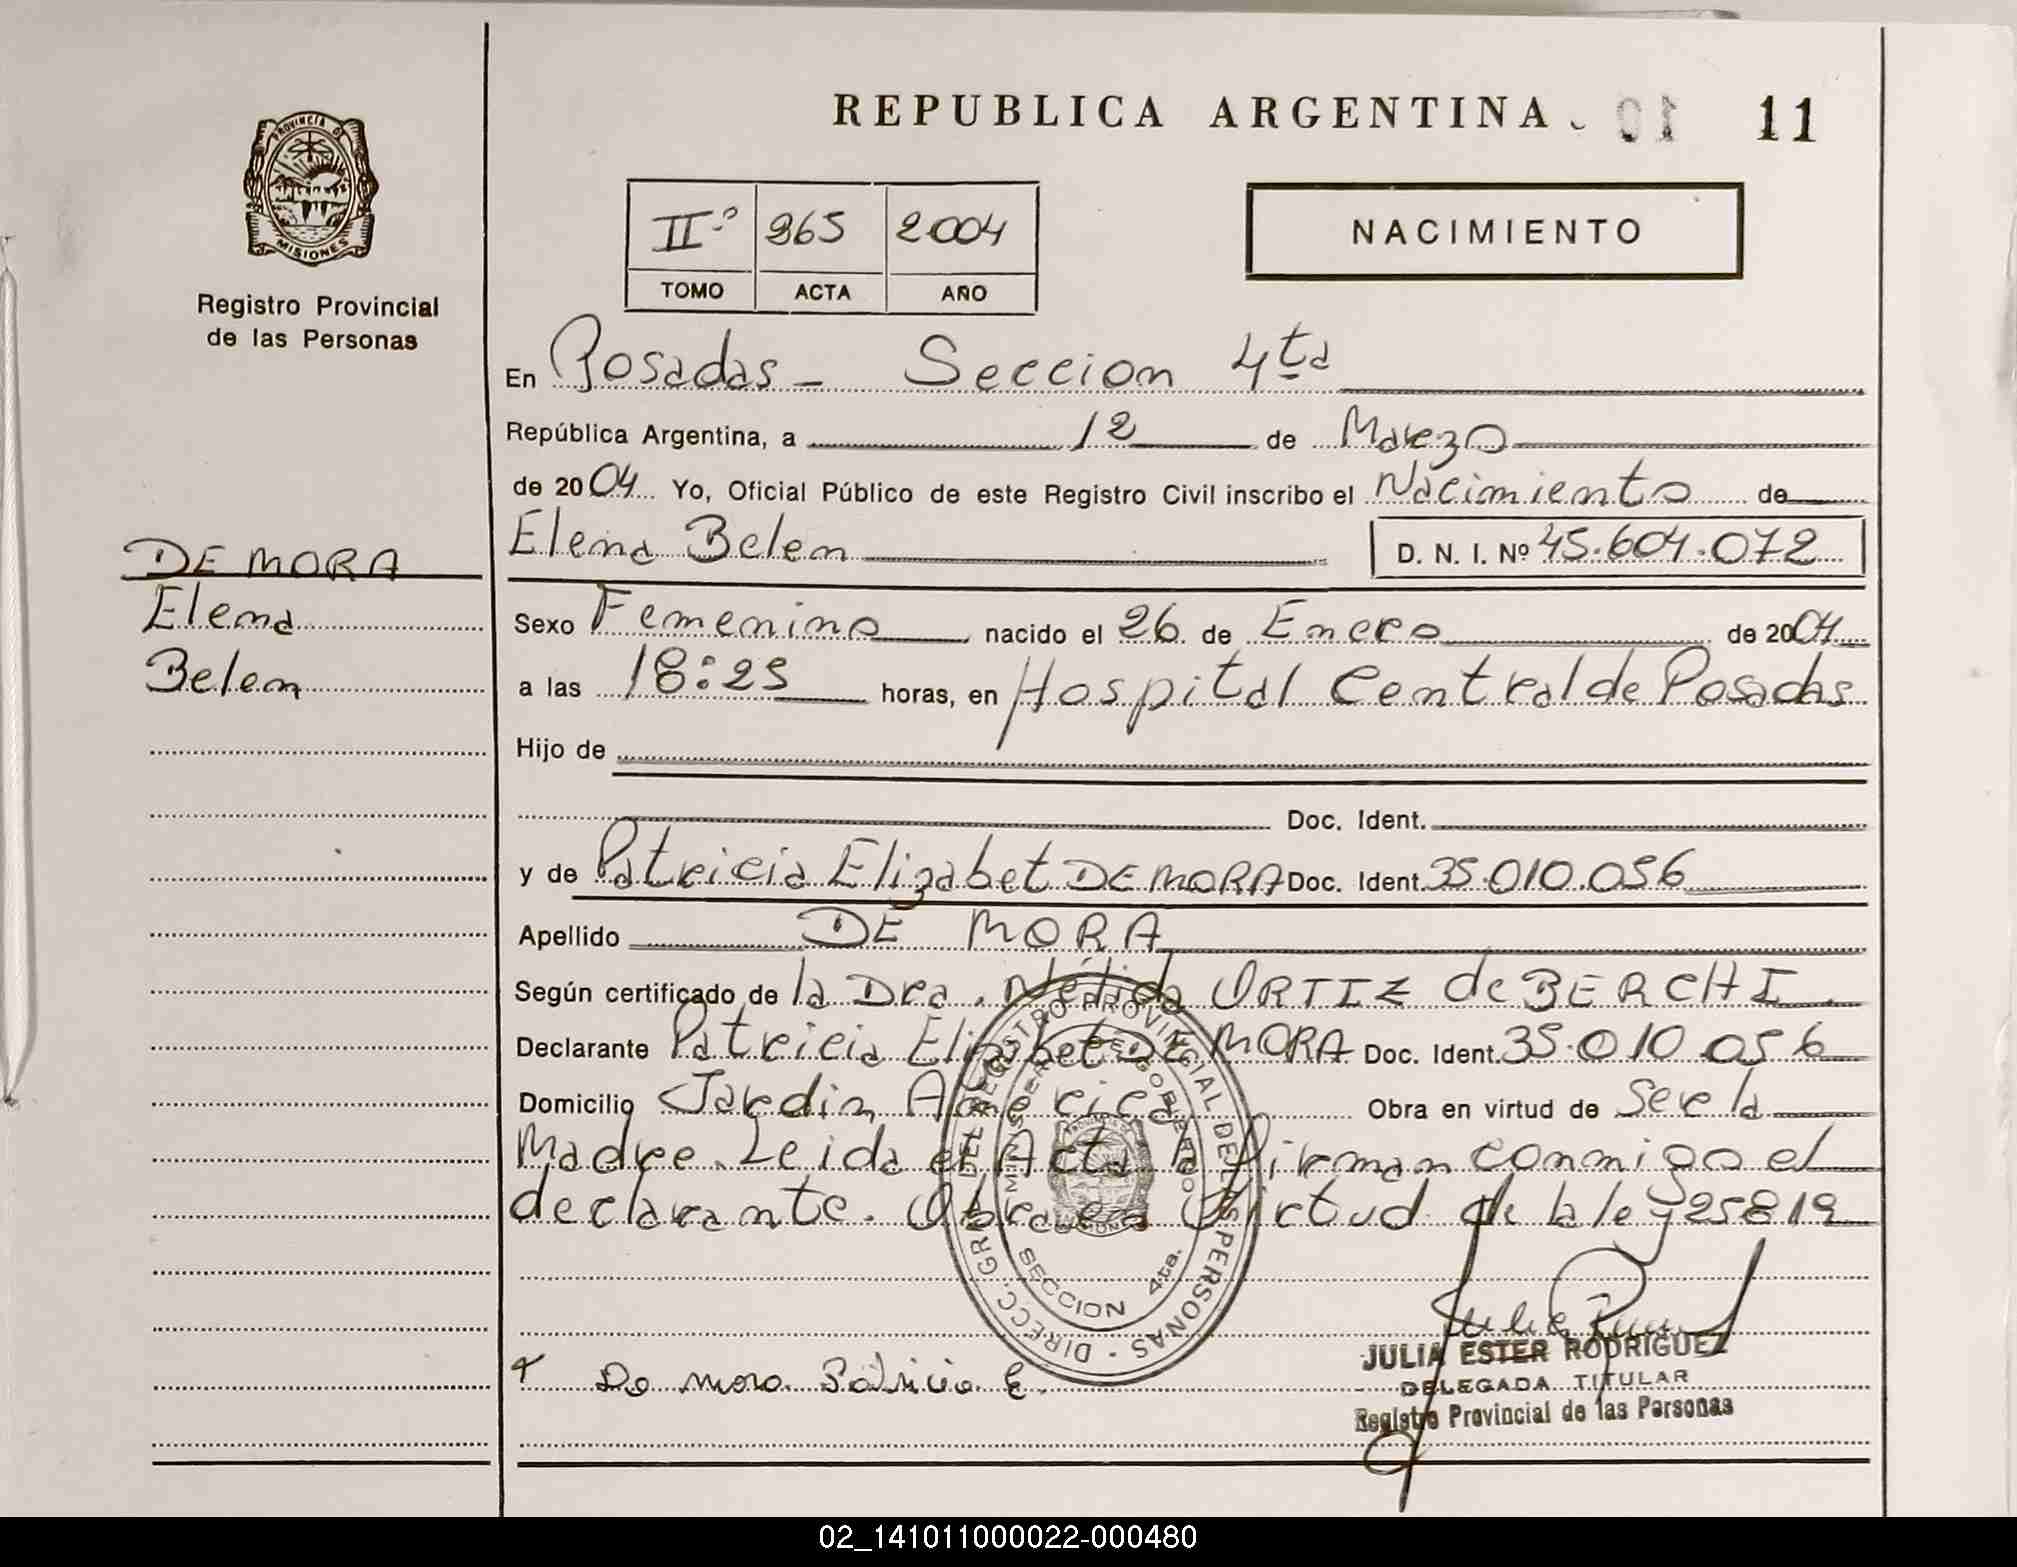 REPUBLICA ARGENTINA
01 11
PROVINCIA DE
MISIONES
Registro Provincial
de las Personas
IIº 965 2004
TOMO ACTA AÑO
NACIMIENTO
En Posadas - Seccion 4ta
República Argentina, a 12 de Marzo
de 2004 Yo, Oficial Público de este Registro Civil inscribo el Nacimiento de
Elena Belen D. N. I. Nº 45.604.072
DE MORA
Elena
Belen
Sexo Femenino nacido el 26 de Enero de 2004
a las 18:25 horas, en Hospital Central de Posadas
Hijo de
Doc. Ident.
y de Patricia Elizabet DE MORA Doc. Ident. 35.010.056
Apellido DE MORA
Según certificado de la Dra. Nélida ORTIZ de BERCHI
Declarante Patricia Elizabet DE MORA Doc. Ident. 35.010.056
Domicilio Jardin America Obra en virtud de Ser la
Madre. Leida el Acta la Firman conmigo el
declarante. Obra en Virtud de la ley 25819
DIRECC. GRAL. DEL REGISTRO PROVINCIAL DE LAS PERSONAS
SECCION 4ta.
De mora Patricia E.
JULIA ESTER RODRIGUEZ
DELEGADA TITULAR
Registro Provincial de las Personas
02_141011000022-000480